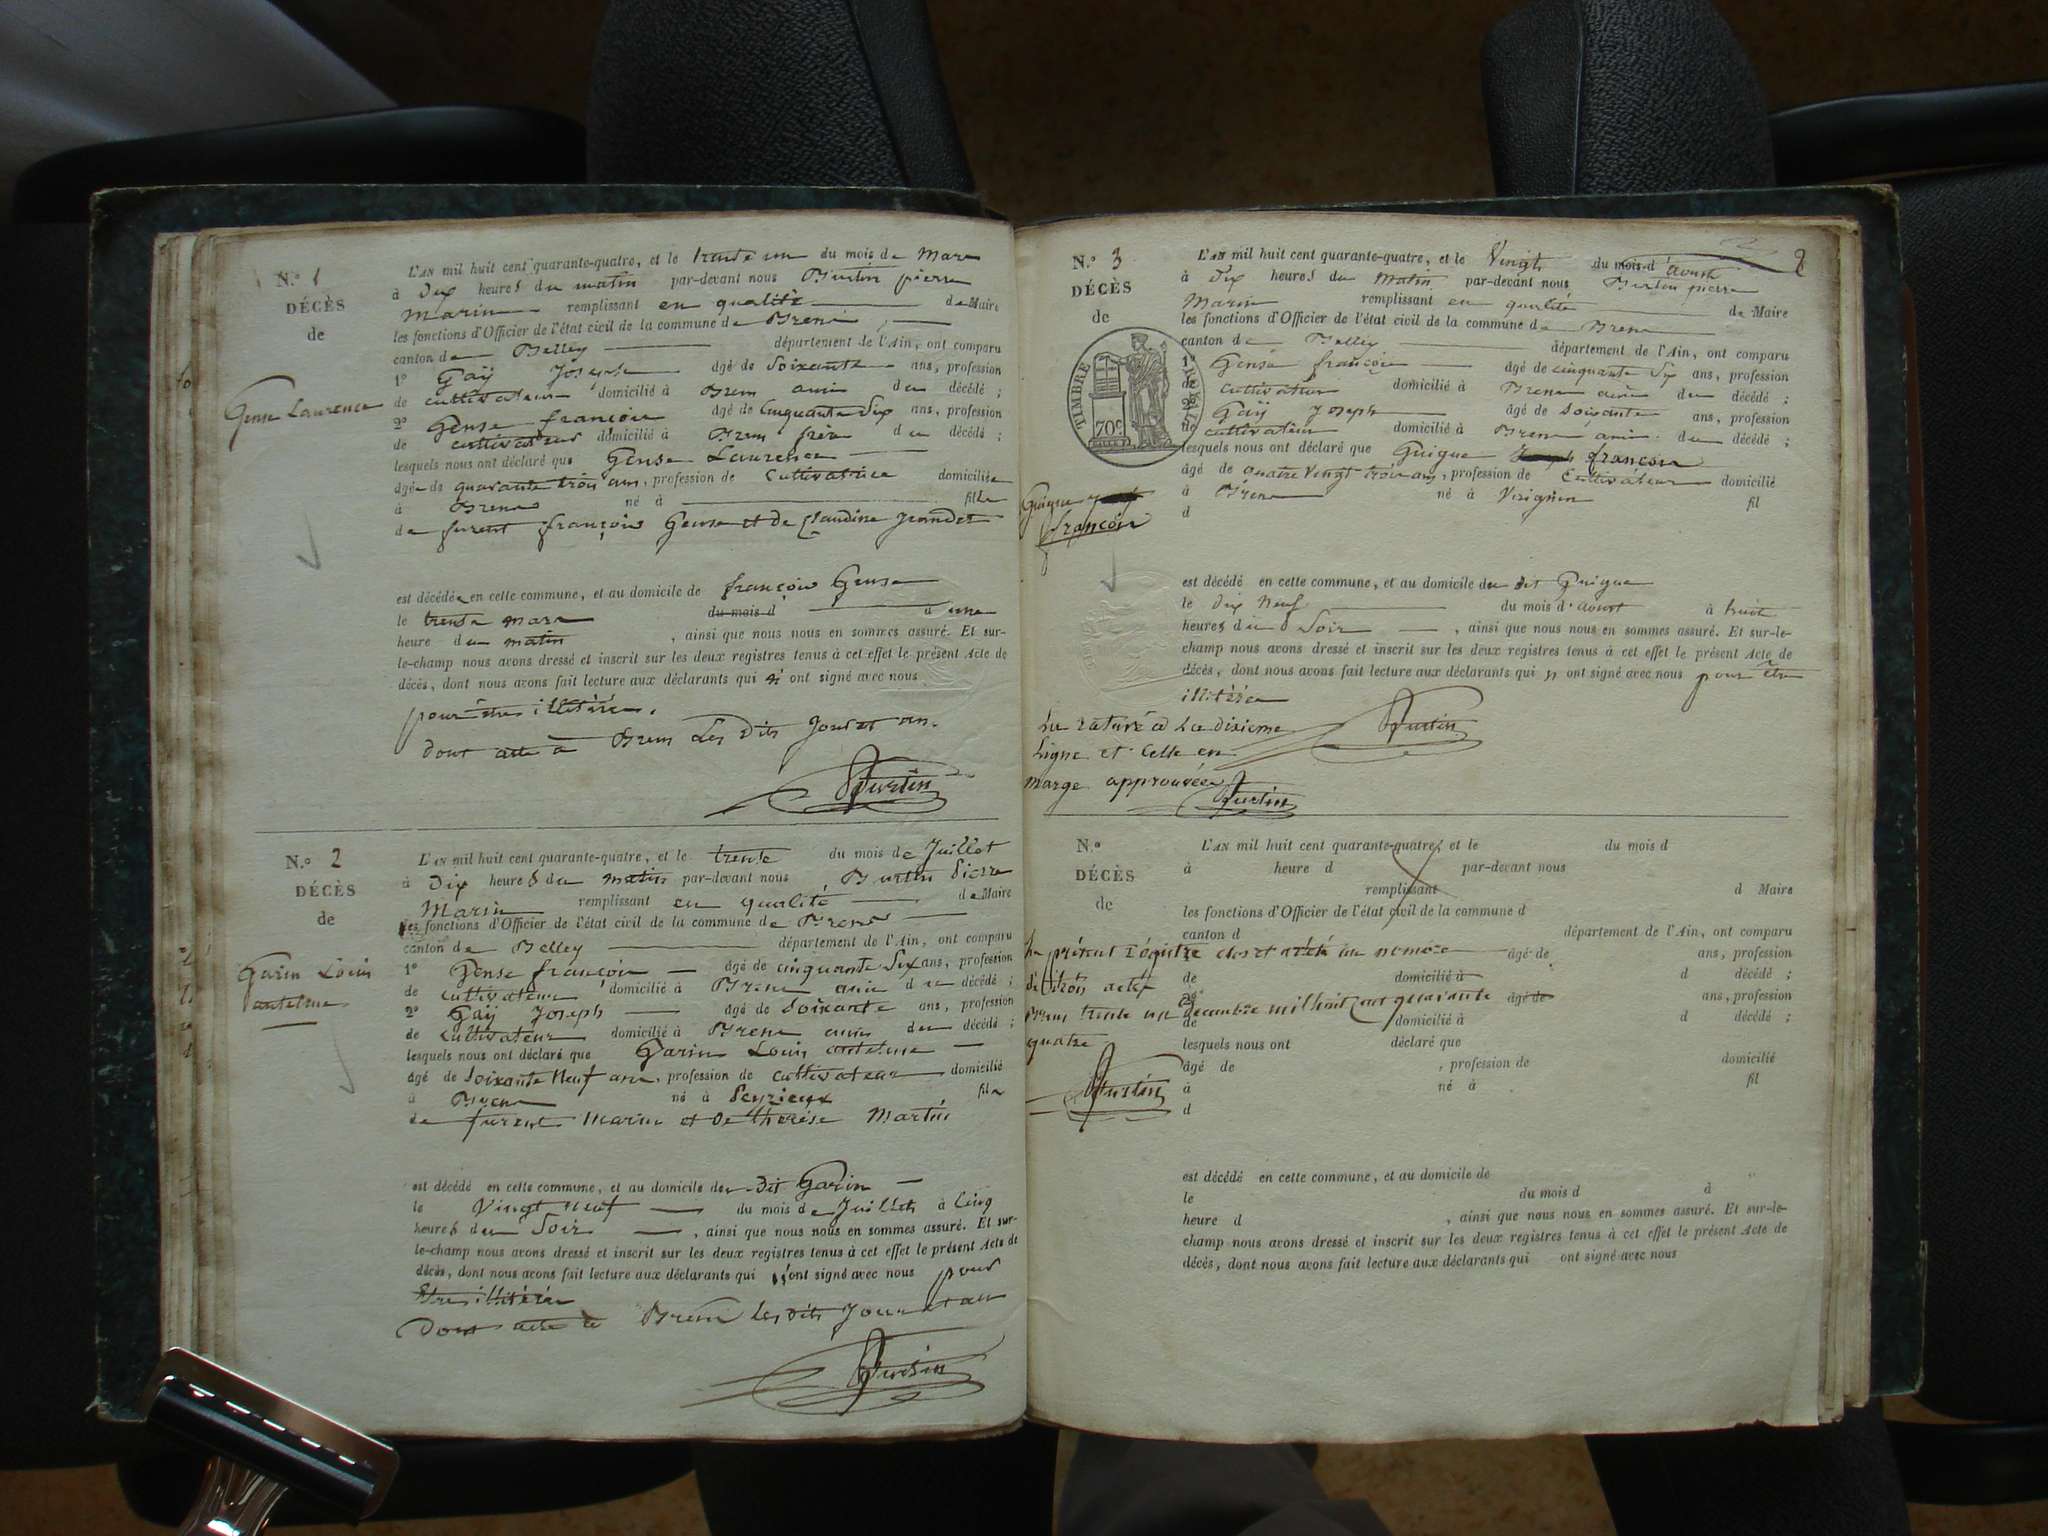 N.º 1
DÉCÈS
de
Gense Laurence
L'AN mil huit cent quarante-quatre, et le trente un du mois de Mars
à Dix heures du matin par-devant nous Burtin pierre
Marin remplissant en qualité de Maire
les fonctions d'Officier de l'état civil de la commune de Brens
canton de Belley département de l'Ain, ont comparu
1º Gaÿ Joseph âgé de Soixante ans, profession
de cultivateur domicilié à Brens ami du décédé ;
2º Gense françois âgé de Cinquante Six ans, profession
de cultivateur domicilié à Brens frère du décédé ;
lesquels nous ont déclaré que Gense Laurence
âgée de quarante trois ans, profession de Cultivatrice domiciliée
à Brens né à fille
de furent françois Gense et de Claudine Jrandet
est décédée en cette commune, et au domicile de françois Gense
le trente mars du mois d' à une
heure du matin , ainsi que nous nous en sommes assuré. Et sur-
le-champ nous avons dressé et inscrit sur les deux registres tenus à cet effet le présent Acte de
décès, dont nous avons fait lecture aux déclarants qui n' ont signé avec nous
pour être illitérés.
dont acte à Brens Les Dits Jour et an.
Burtin
N.º 2
DÉCÈS
de
Garin Louis
antelme
L'AN mil huit cent quarante-quatre, et le trente du mois de Juillet
à Dix heures du matin par-devant nous Burtin Pierre
Marin remplissant en qualité de Maire
les fonctions d'Officier de l'état civil de la commune de Brens
canton de Belley département de l'Ain, ont comparu
1º Gense françois âgé de cinquante Six ans, profession
de Cultivateur domicilié à Brens ami du décédé ;
2º Gaÿ Joseph âgé de Soixante ans, profession
de Cultivateur domicilié à Brens ami du décédé ;
lesquels nous ont déclaré que Garin Louis antelme
âgé de Soixante Neuf ans, profession de cultivateur domicilié
à Brens né à Peyrieux fils
de furent Marin et de thérèse Martin
est décédé en cette commune, et au domicile du dit Garin
le Vingt neuf du mois de Juillet à Cinq
heures du Soir , ainsi que nous nous en sommes assuré. Et sur-
le-champ nous avons dressé et inscrit sur les deux registres tenus à cet effet le présent Acte de
décès, dont nous avons fait lecture aux déclarants qui n' ont signé avec nous pour
Etre illitérés
dont acte à Brens les dits Jour et an
Burtin
2
N.º 3
DÉCÈS
de
TIMBRE ROYAL
70c
Guigue
françois
L'AN mil huit cent quarante-quatre, et le Vingt du mois d'aoust
à Dix heures du Matin par-devant nous Burtin pierre
Marin remplissant en qualité de Maire
les fonctions d'Officier de l'état civil de la commune de Brens
canton de Belley département de l'Ain, ont comparu
1º Gense françois âgé de cinquante Six ans, profession
de cultivateur domicilié à Brens ami du décédé ;
2º Gaÿ Joseph âgé de Soixante ans, profession
de cultivateur domicilié à Brens ami du décédé ;
lesquels nous ont déclaré que Guigue Joseph françois
âgé de quatre Vingt trois ans, profession de Cultivateur domicilié
à Brens né à Virignin fil
d
est décédé en cette commune, et au domicile du dit Guigue
le dix Neuf du mois d'aoust à huit
heures du Soir , ainsi que nous nous en sommes assuré. Et sur-le-
champ nous avons dressé et inscrit sur les deux registres tenus à cet effet le présent Acte de
décès, dont nous avons fait lecture aux déclarants qui n ont signé avec nous pour être
illitérés
Burtin
La rature à La dixieme
Ligne et Celle en
marge approuvées
Burtin
N.º
DÉCÈS
de
L'AN mil huit cent quarante-quatre, et le du mois d
à heure d par-devant nous
remplissant d Maire
les fonctions d'Officier de l'état civil de la commune d
canton d département de l'Ain, ont comparu
Le présent régistre clos et arrêté au nombre âgé de ans, profession
de trois actes de domicilié à d décédé ;
2º âgé de ans, profession
Brens trente un Decembre mil huit cent quarante
de domicilié à d décédé ;
quatre
lesquels nous ont déclaré que
âgé de , profession de domicilié
Burtin
à né à fil
d
est décédé en cette commune, et au domicile de
le du mois d à
heure d , ainsi que nous nous en sommes assuré. Et sur-le-
champ nous avons dressé et inscrit sur les deux registres tenus à cet effet le présent Acte de
décès, dont nous avons fait lecture aux déclarants qui ont signé avec nous